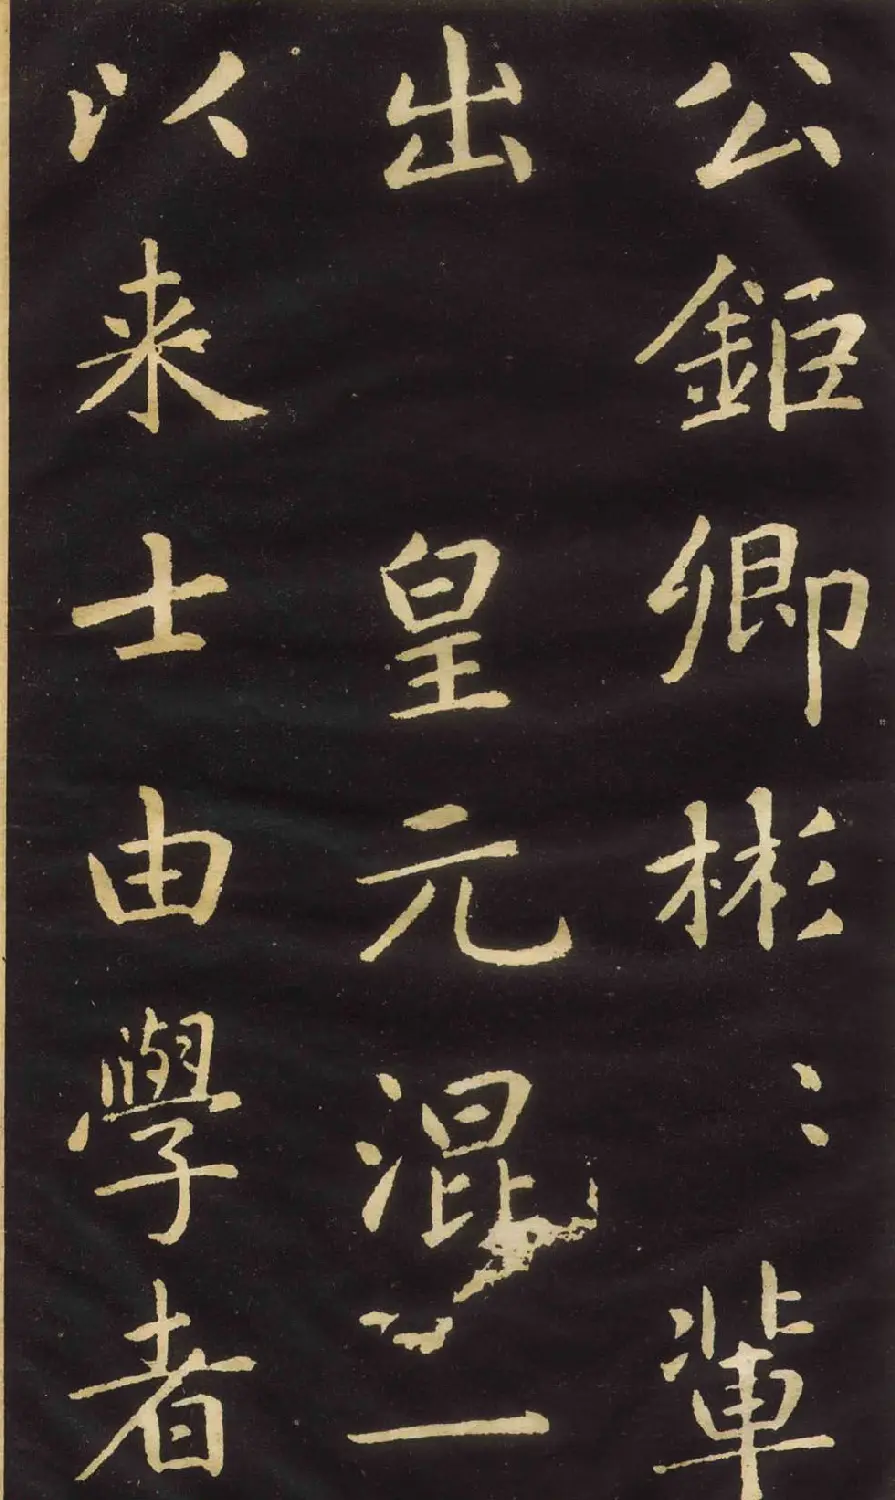 公鉅卿彬〻輩
出 皇元混一
以来士由學者